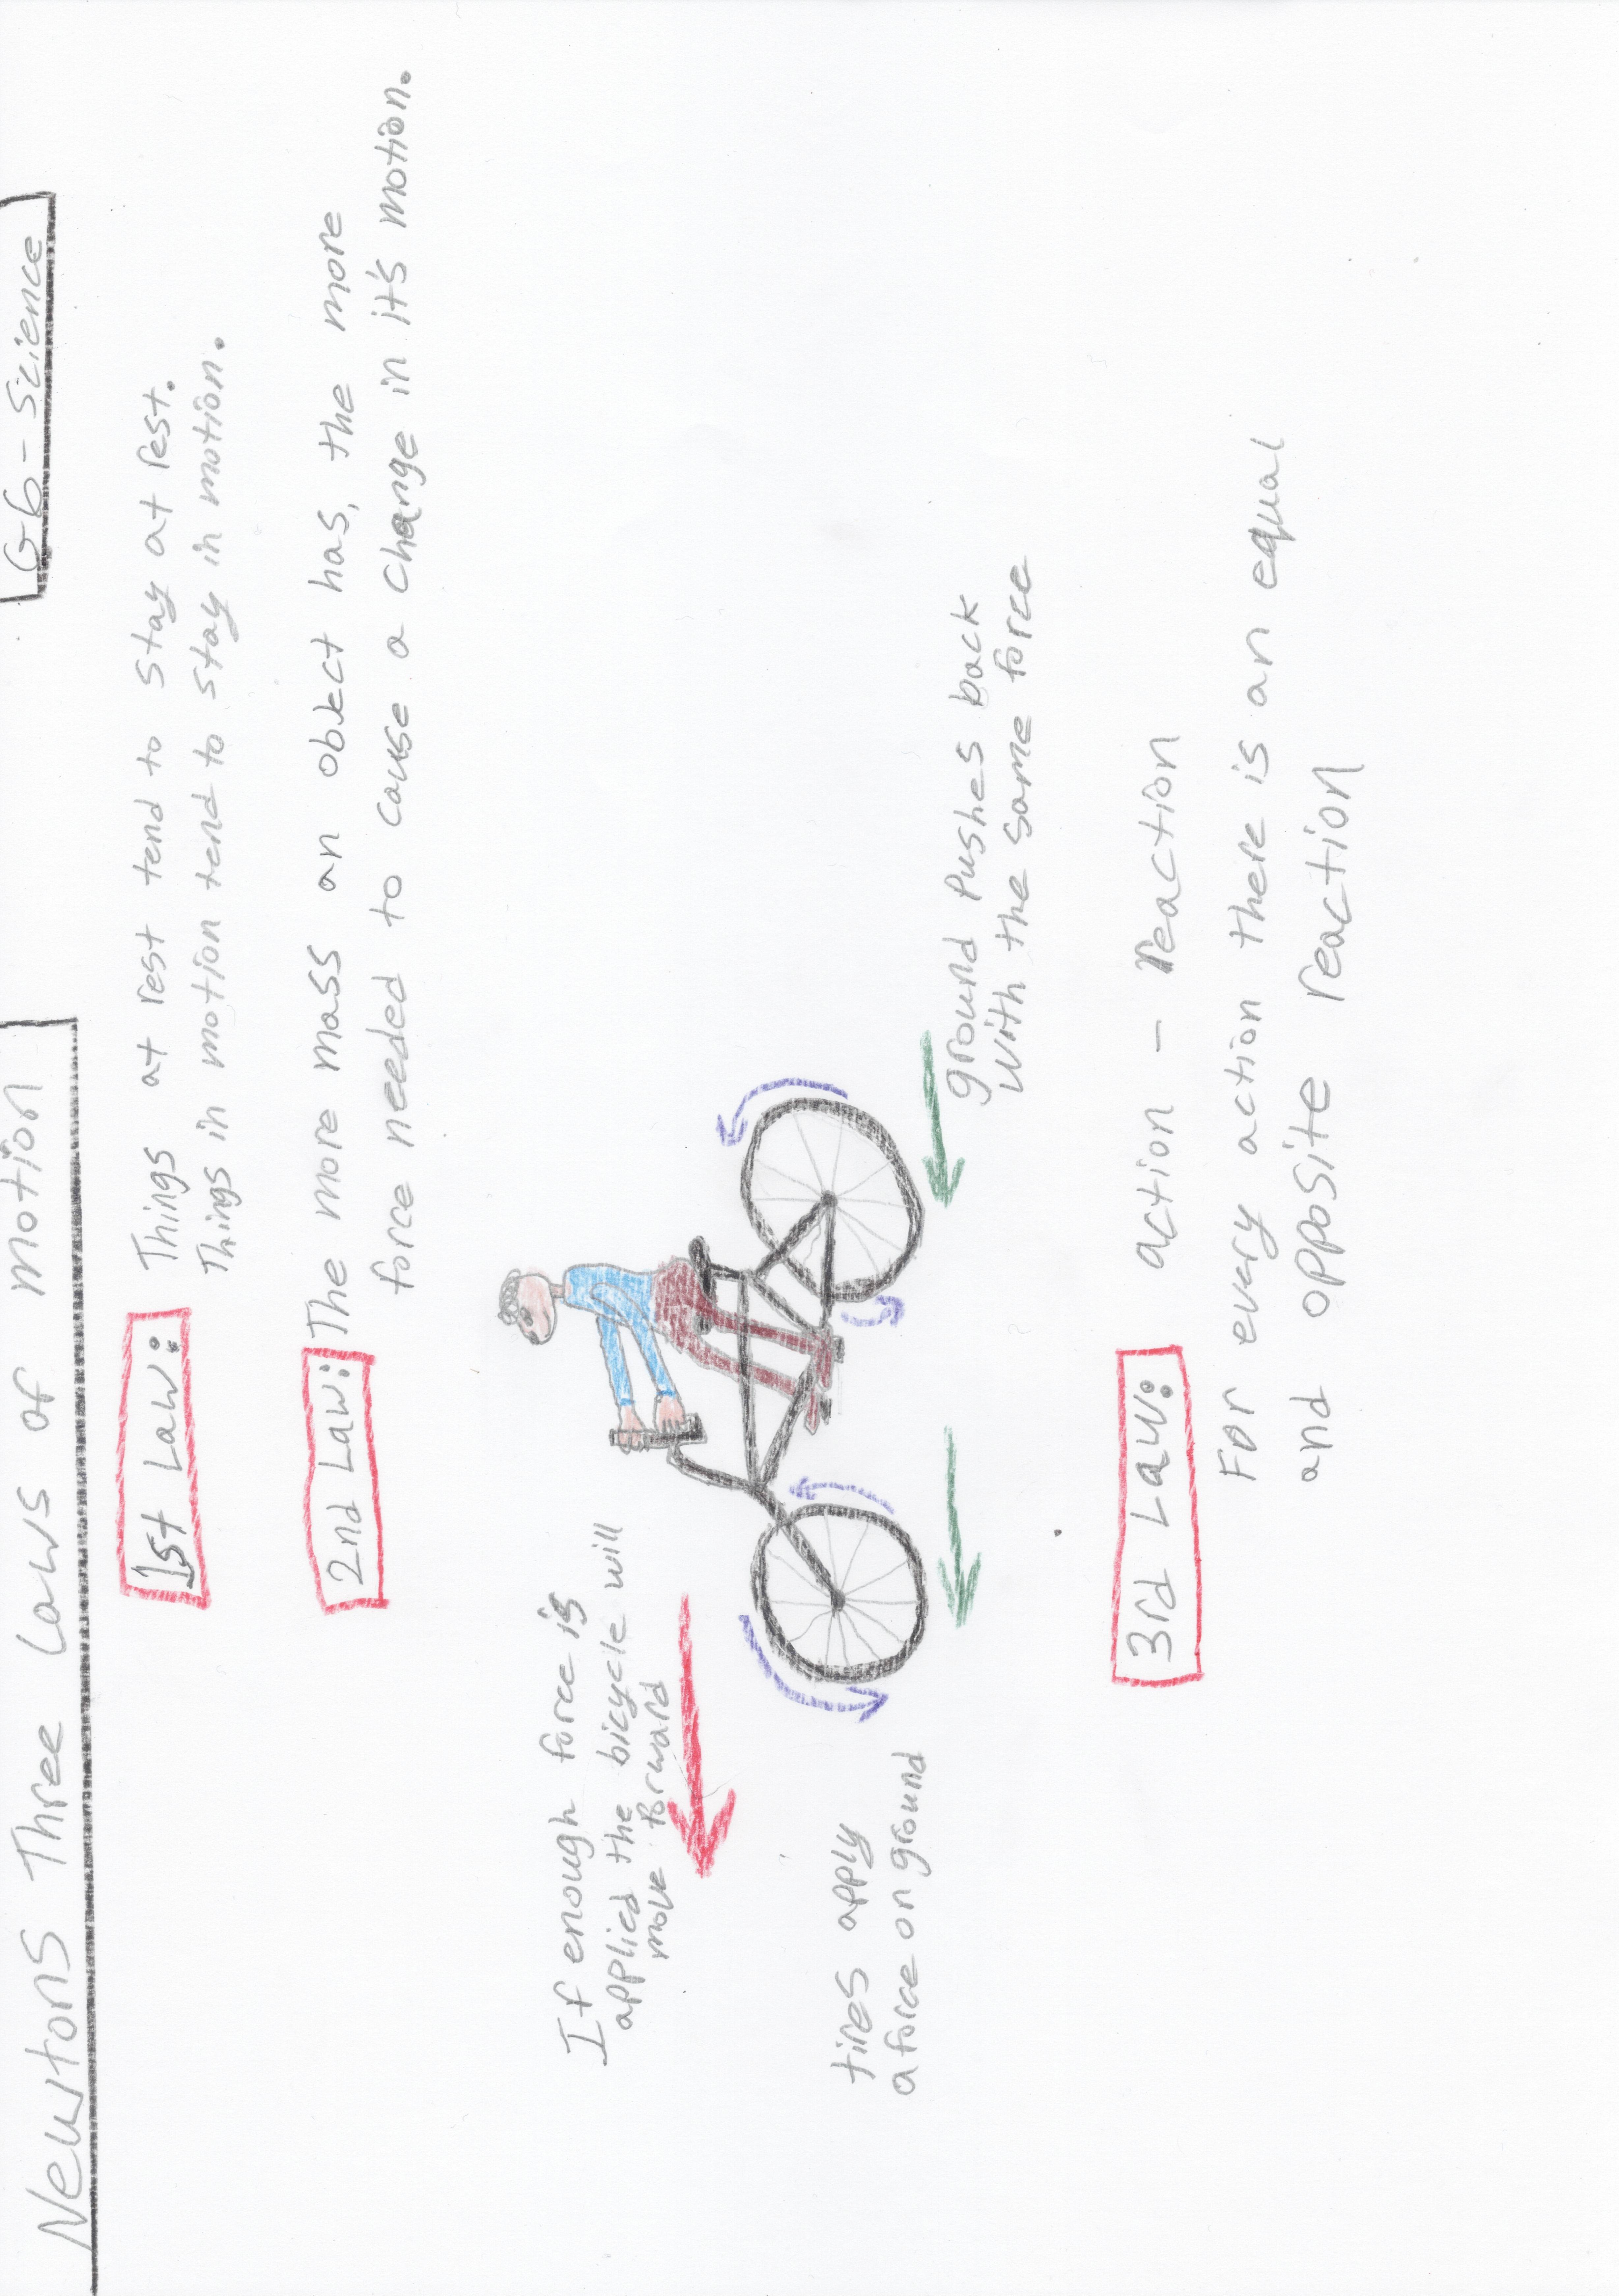 Newtons Three Laws of motion
G6 - Science
1st Law: Things at rest tend to stay at rest.
Things in motion tend to stay in motion.
2nd Law: The more mass an object has, the more
force needed to cause a change in it's motion.
If enough force is
applied the bicycle will
move forward
tires apply
a force on ground
ground pushes back
with the same force
3rd Law: action - reaction
For every action there is an equal
and opposite reaction